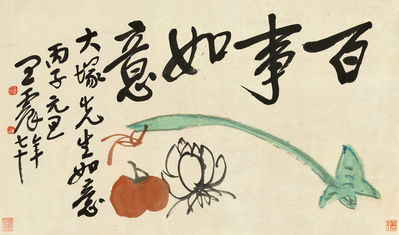 百事如意
大塚先生如意
丙子元旦
王震年七十